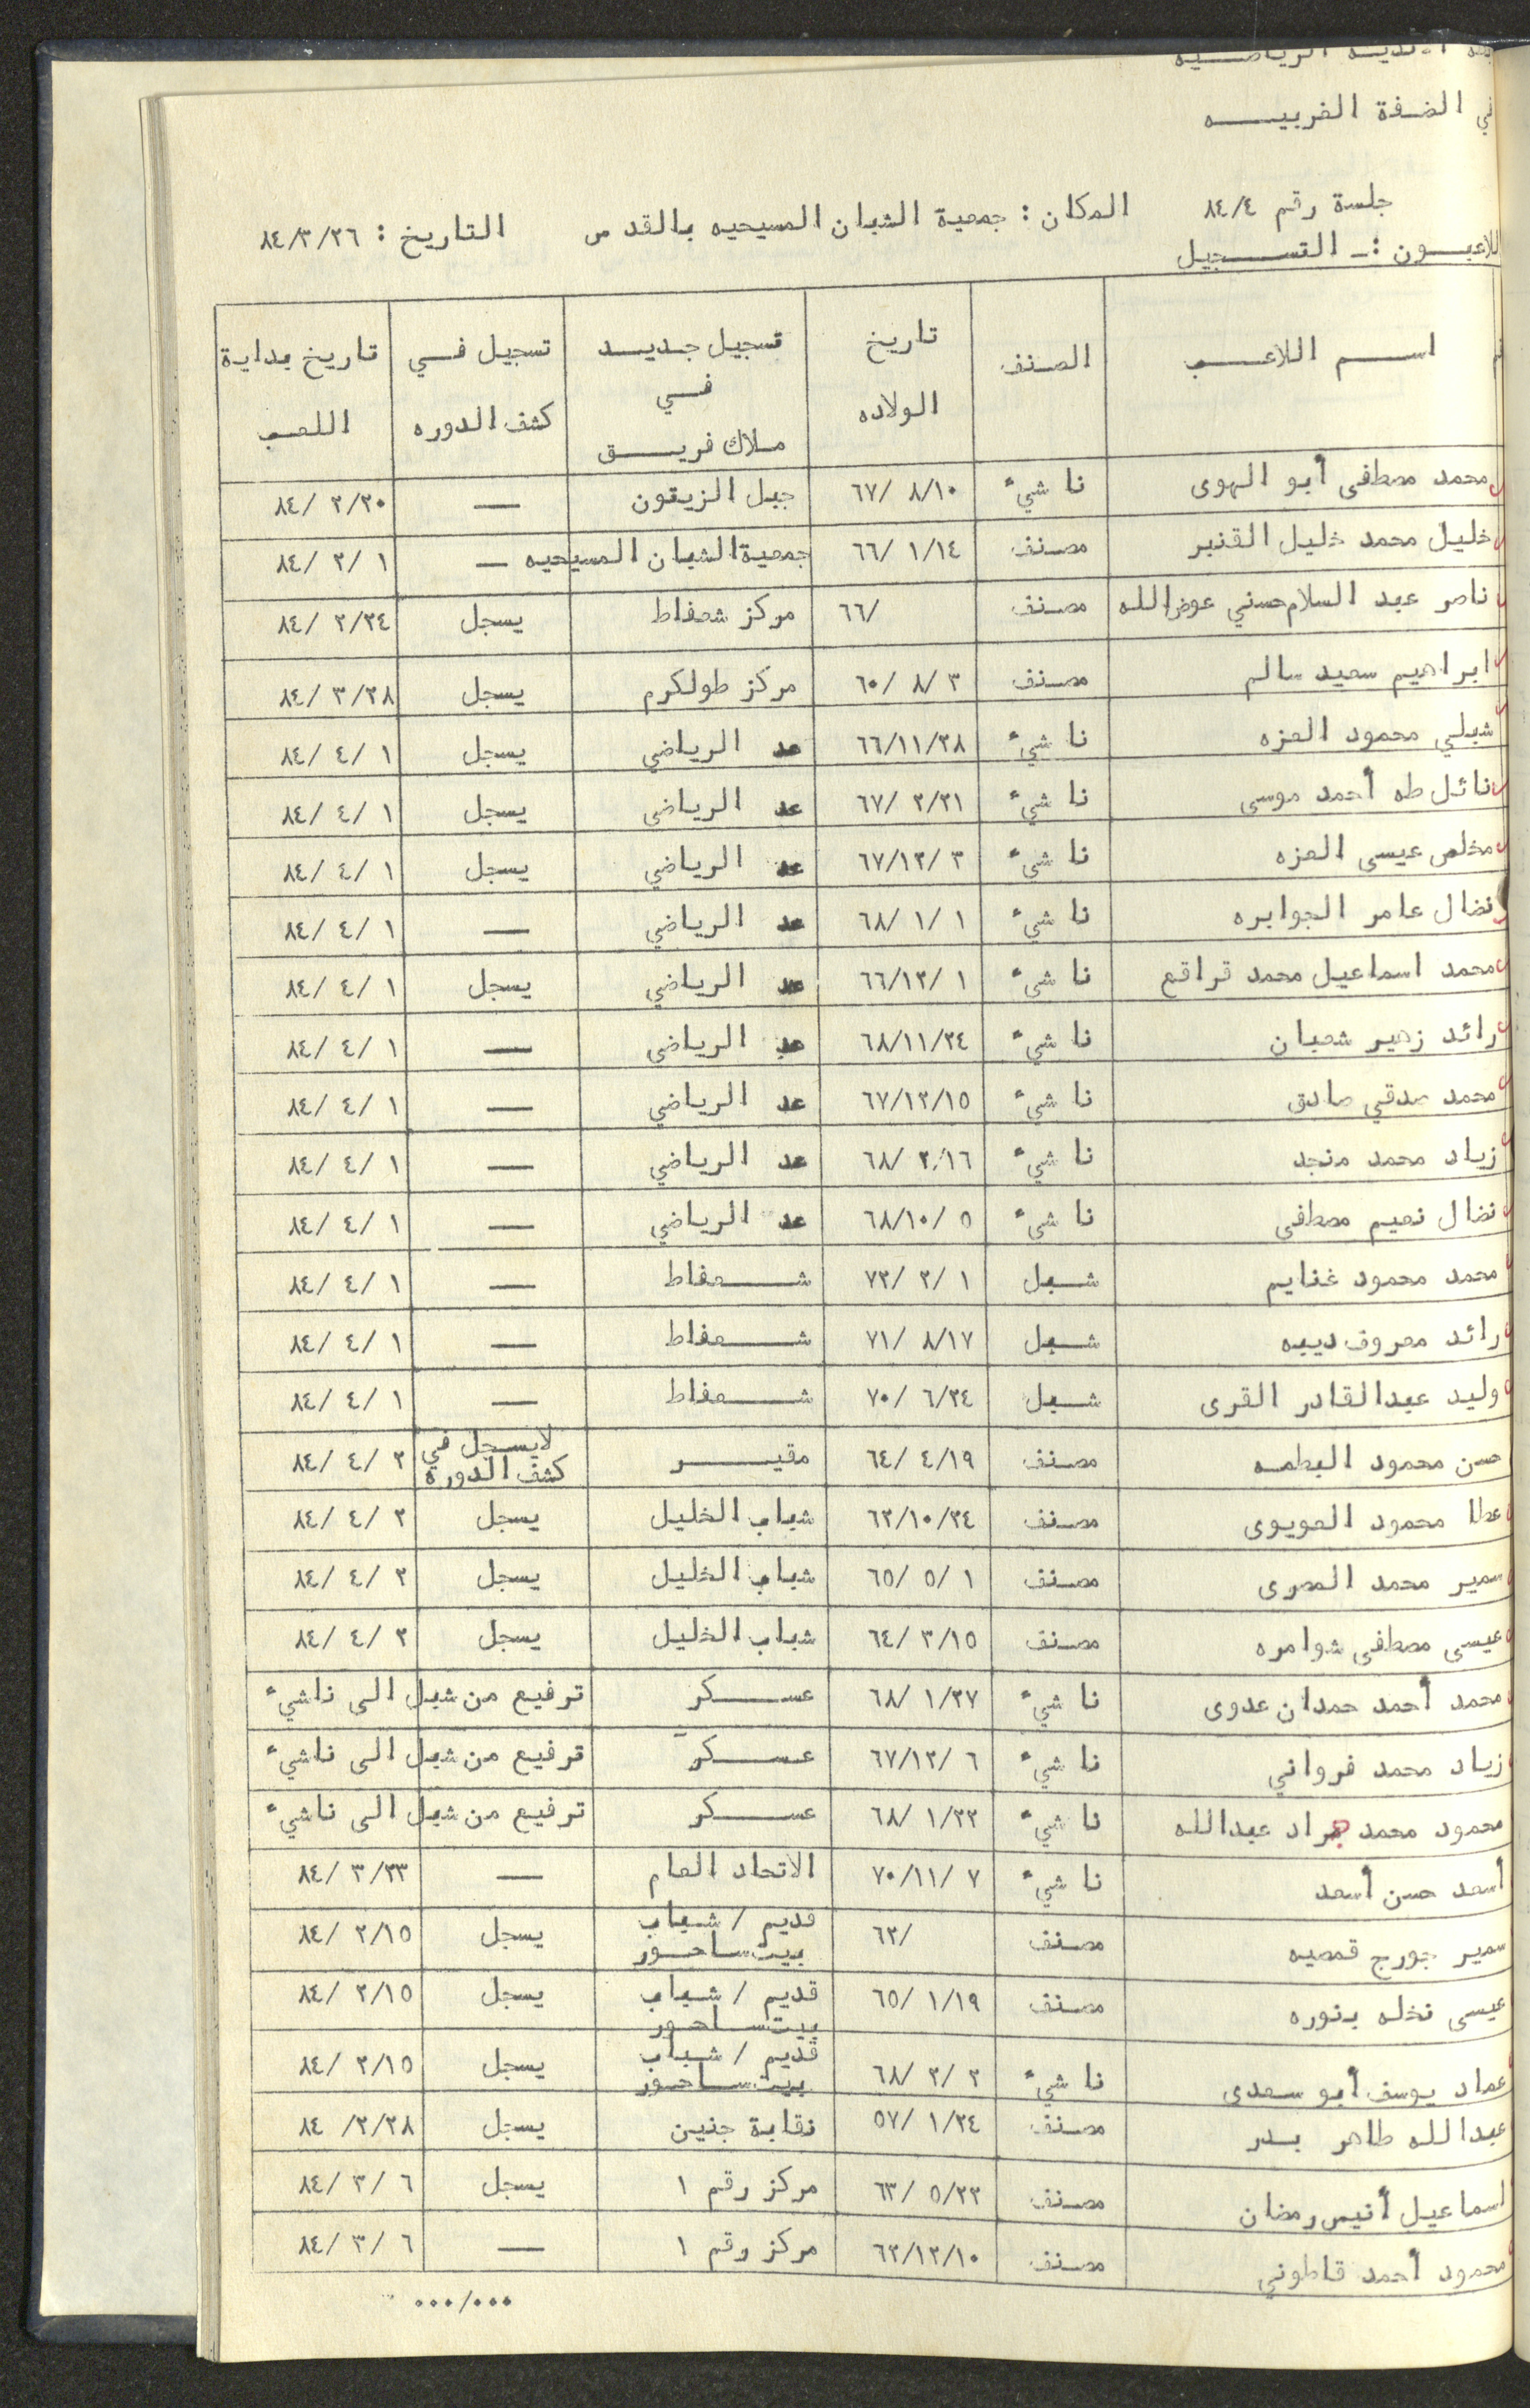 الأندية الرياضيـــه
في الضفة الغربيــــه
جلسة رقم ٨٤/٤ المكان : جمعية الشبان المسيحيه بالقدس التاريخ : ٨٤/٣/٢٦
اللاعبــون :ــ التســـجيل
اســـم اللاعـــب الصنف تاريخ الولاده تسجيل جديــد فــي ملاك فريـــق تسجيل فــي كشف الدوره تاريخ بداية اللعب
محمد مصطفى أبو الهوى ناشيء ٦٧/ ٨/١٠ جبل الزيتون ـــ ٨٤/ ٢/٢٠
خليل محمد خليل القنبر مصنف ٦٦/ ١/١٤ جمعية الشبان المسيحيه ـــ ٨٤/ ٢/ ١
ناصر عبد السلام حسني عوض الله مصنف ٦٦/ مركز شعفاط يسجل ٨٤/ ٢/٢٤
ابراهيم سعيد سالم مصنف ٦٠/ ٨/ ٣ مركز طولكرم يسجل ٨٤/ ٣/٢٨
شبلي محمود العزه ناشيء ٦٦/١١/٢٨ عد الرياضي يسجل ٨٤/ ٤/ ١
نائل طه أحمد موسى ناشيء ٦٧/ ٢/٢١ عد الرياضي يسجل ٨٤/ ٤/ ١
مخلص عيسى العزه ناشيء ٦٧/١٢/ ٣ عد الرياضي يسجل ٨٤/ ٤/ ١
نضال عامر الجوابره ناشيء ٦٨/ ١/ ١ عد الرياضي ـــ ٨٤/ ٤/ ١
محمد اسماعيل محمد قراقع ناشيء ٦٦/١٢/ ١ عد الرياضي يسجل ٨٤/ ٤/ ١
رائد زهير شعبان ناشيء ٦٨/١١/٢٤ عد الرياضي ـــ ٨٤/ ٤/ ١
محمد صدقي صادق ناشيء ٦٧/١٢/١٥ عد الرياضي ـــ ٨٤/ ٤/ ١
زياد محمد منجد ناشيء ٦٨/ ٢/١٦ عد الرياضي ـــ ٨٤/ ٤/ ١
نضال نعيم مصطفى ناشيء ٦٨/١٠/ ٥ عد الرياضي ـــ ٨٤/ ٤/ ١
محمد محمود غنايم شــبل ٧٢/ ٢/ ١ شـــعفاط ـــ ٨٤/ ٤/ ١
رائد معروف ديبه شــبل ٧١/ ٨/١٧ شـــعفاط ـــ ٨٤/ ٤/ ١
وليد عبدالقادر القرى شــبل ٧٠/ ٦/٢٤ شـــعفاط ـــ ٨٤/ ٤/ ١
حسن محمود البطمه مصنف ٦٤/ ٤/١٩ مقيـــــر لايسجل في كشف الدوره ٨٤/ ٤/ ٢
عطا محمود العويوى مصنف ٦٢/١٠/٢٤ شباب الخليل يسجل ٨٤/ ٤/ ٢
سمير محمد المصرى مصنف ٦٥/ ٥/ ١ شباب الخليل يسجل ٨٤/ ٤/ ٢
عيسى مصطفى شوامره مصنف ٦٤/ ٣/١٥ شباب الخليل يسجل ٨٤/ ٤/ ٢
محمد أحمد حمدان عدوى ناشيء ٦٨/ ١/٢٧ عســـكر ترفيع من شبل الى ناشيء
زياد محمد فرواني ناشيء ٦٧/١٢/ ٦ عســـكر ترفيع من شبل الى ناشيء
محمود محمد جراد عبدالله ناشيء ٦٨/ ١/٢٢ عســـكر ترفيع من شبل الى ناشيء
أسعد حسن أسعد ناشيء ٧٠/١١/ ٧ الاتحاد العام ـــ ٨٤/ ٣/٢٣
سمير جورج قمصيه مصنف ٦٢/ قديم / شباب بيت ساحور يسجل ٨٤/ ٢/١٥
عيسى نخله بنوره مصنف ٦٥/ ١/١٩ قديم / شباب بيت ساحور يسجل ٨٤/ ٢/١٥
عماد يوسف أبو سعدى ناشيء ٦٨/ ٢/ ٢ قديم / شباب بيت ساحور يسجل ٨٤/ ٢/١٥
عبدالله طاهر بــدر مصنف ٥٧/ ١/٢٤ نقابة جنين يسجل ٨٤ /٢/٢٨
اسماعيل أنيس رمضان مصنف ٦٣/ ٥/٢٢ مركز رقم ١ يسجل ٨٤/ ٣/ ٦
محمود أحمد قاطوني مصنف ٦٢/١٢/١٠ مركز رقم ١ ـــ ٨٤/ ٣/ ٦
٠٠٠/٠٠٠